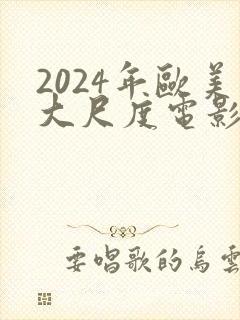 2024年歐美
大尺度電影
要唱歌的烏雲